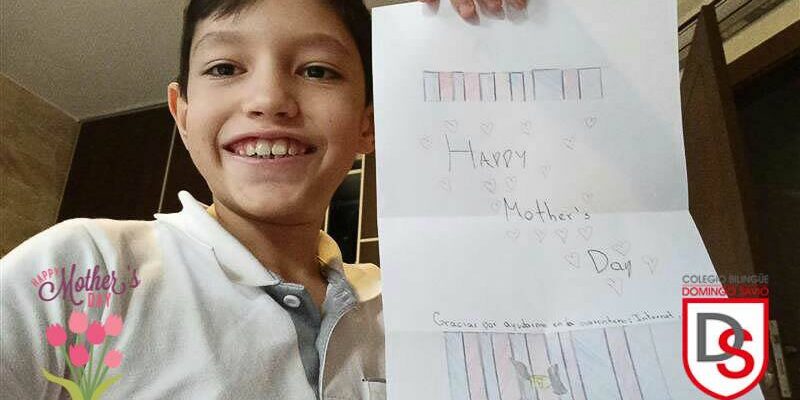 Happy
Mother's
Day
Gracias por ayudarme en la
Internet,
HAPPY
Mother's
DAY
COLEGIO BILINGÜE
DOMINGO SAVIO
DS